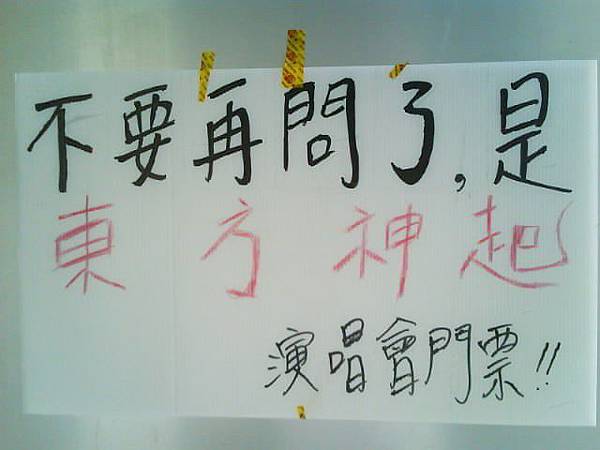 不要再問了,是
東方神起
演唱會門票!!